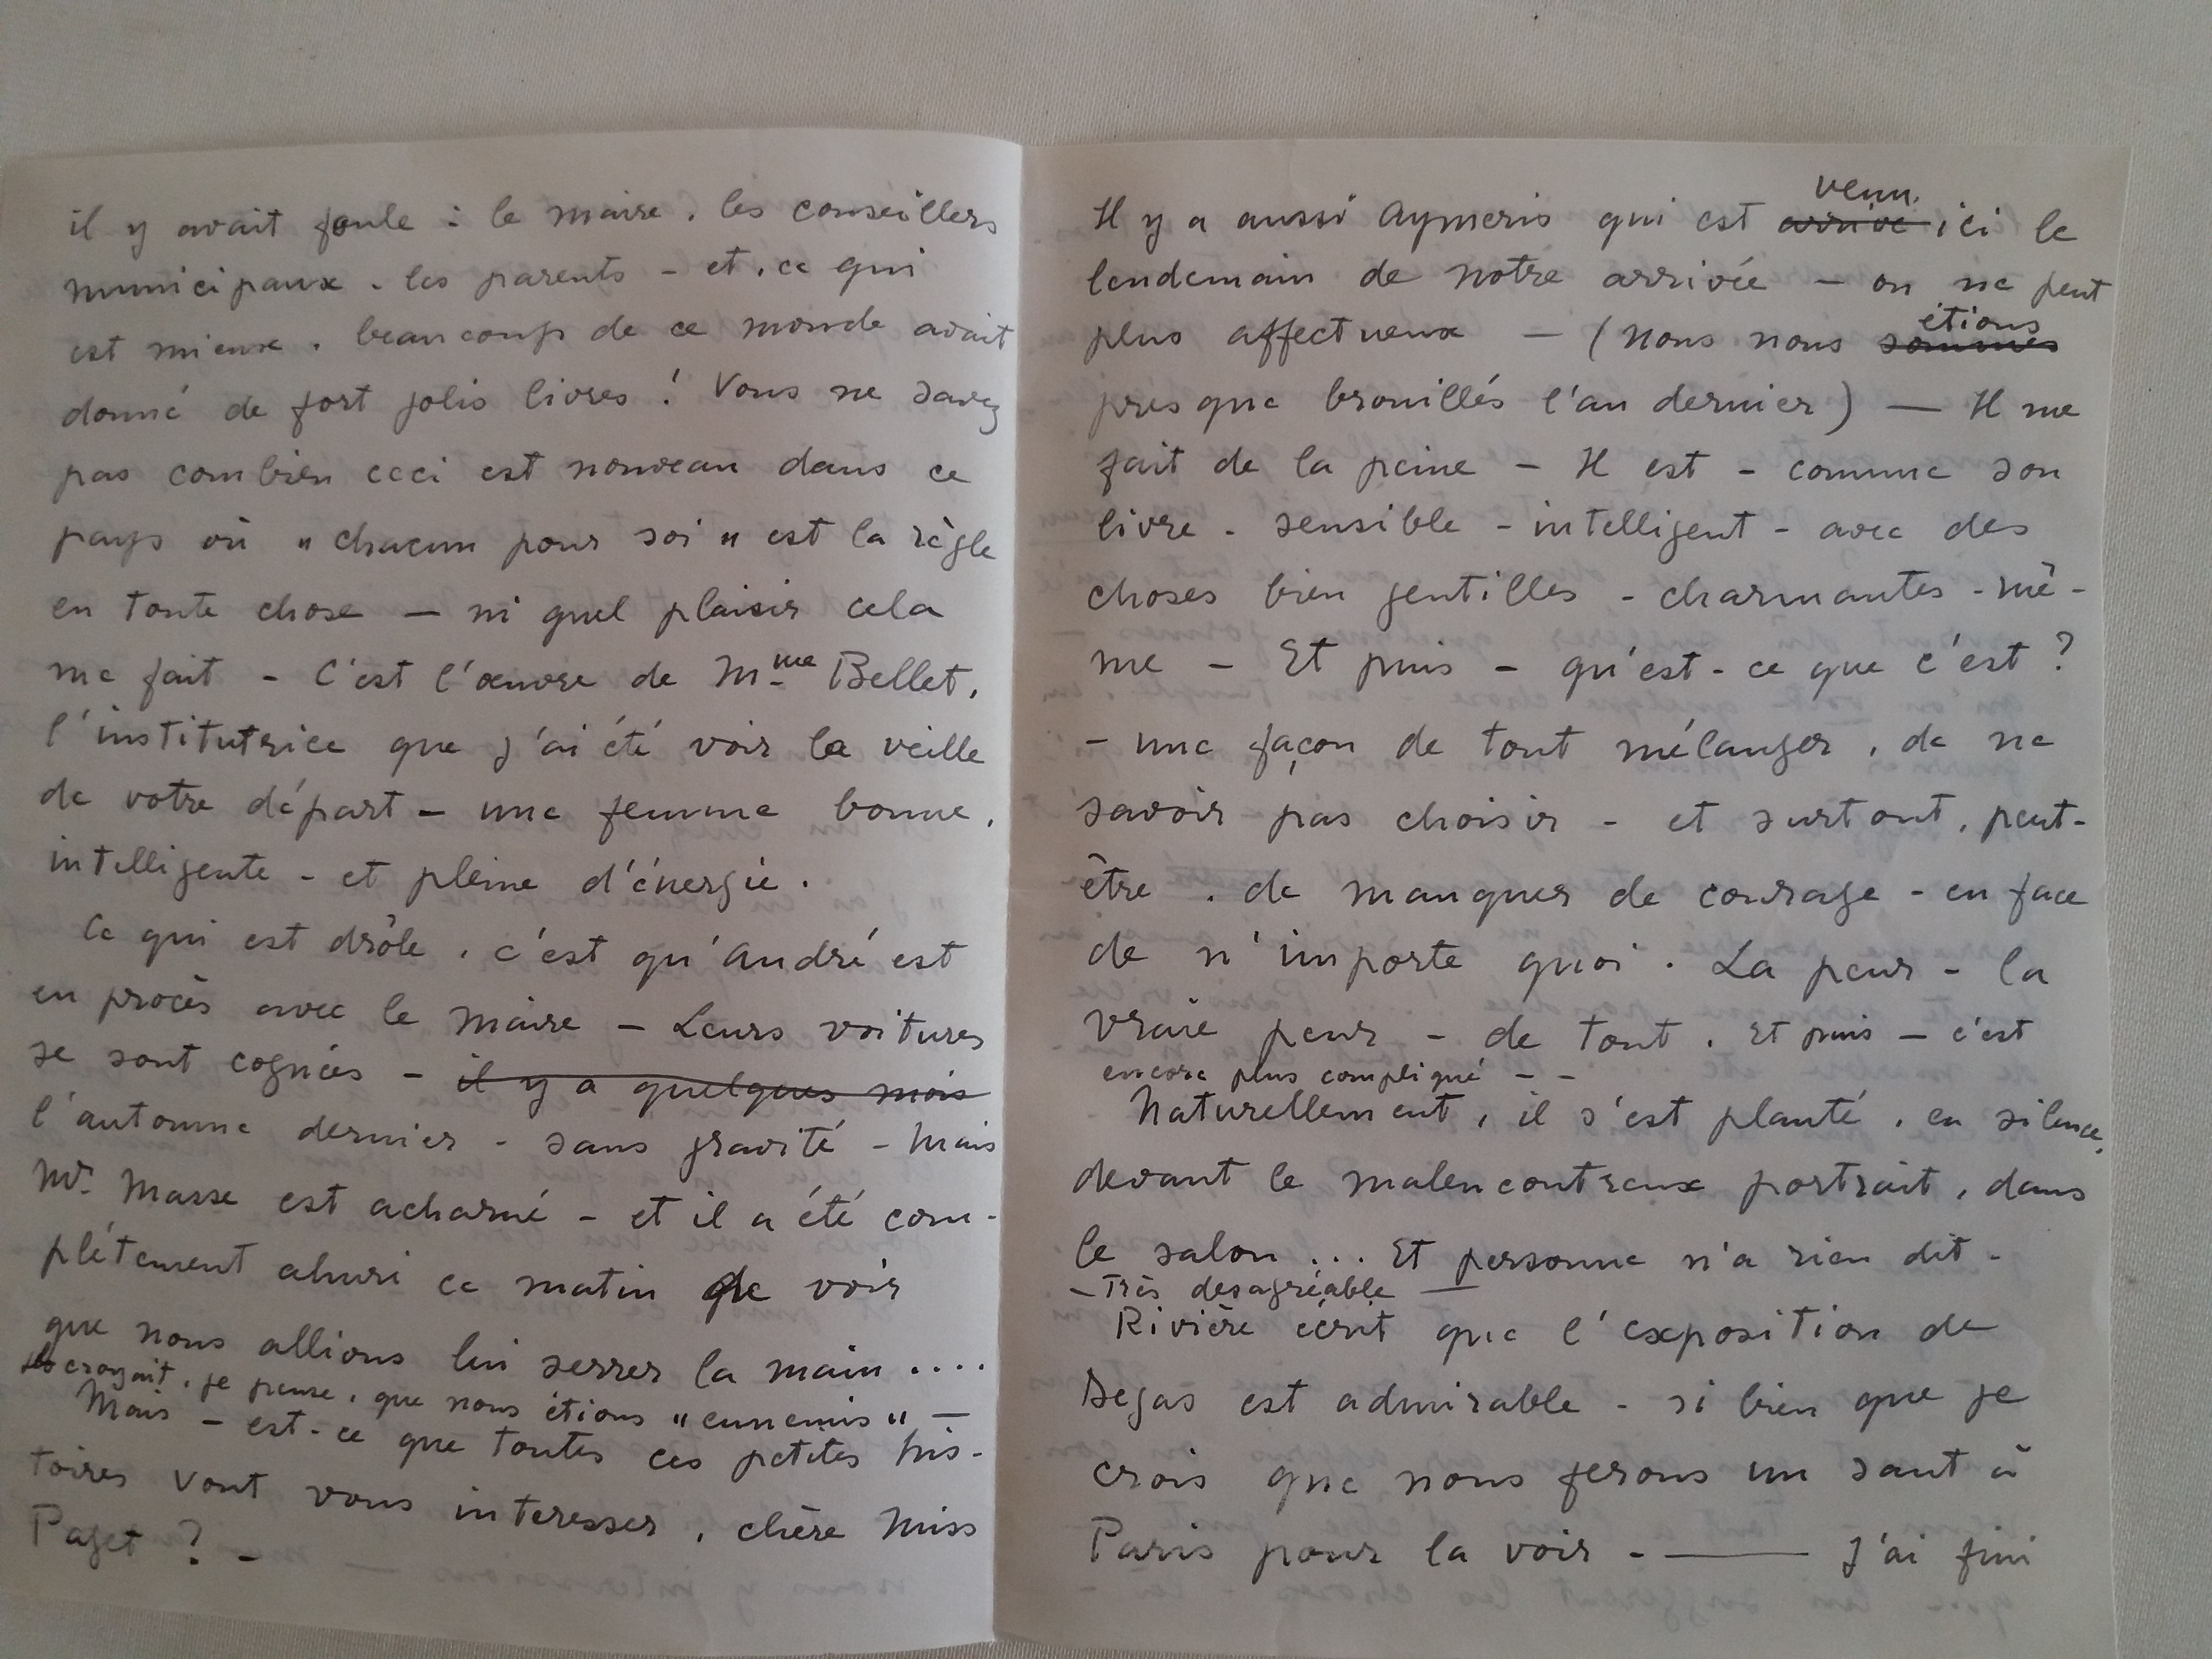 il y avait foule : le maire, les conseillers
municipaux, les parents - et, ce qui
est mieux, beaucoup de ce monde avait
donné de fort jolis livres ! Vous ne savez
pas combien ceci est nouveau dans ce
pays où "chacun pour soi" est la règle
en toute chose — ni quel plaisir cela
me fait - C'est l'œuvre de Mme Bellet,
l'institutrice que j'ai été voir la veille
de votre départ - une femme bonne,
intelligente - et pleine d'énergie.
Ce qui est drôle, c'est qu'André est
en procès avec le maire - Leurs voitures
se sont cognées - il y a quelques mois
l'automne dernier - sans gravité - Mais
Mr. Masse est acharné - et il a été com-
plétement ahuri ce matin de voir
que nous allions lui serrer la main ....
croyait, je pense, que nous étions "ennemis" —
Mais - est-ce que toutes ces petites his-
toires vont vous intéresser, chère Miss
Paget ? -
venu
Il y a aussi Aymeris qui est arrivé ici le
lendemain de notre arrivée - on ne peut
étions
plus affectueux — (Nous nous sommes
presque brouillés l'an dernier) — Il me
fait de la peine - Il est - comme son
livre - sensible - intelligent - avec des
choses bien gentilles - charmantes - mê-
me - Et puis - qu'est-ce que c'est ?
- une façon de tout mélanger, de ne
savoir pas choisir - et surtout, peut-
être, de manquer de courage - en face
de n'importe quoi. La peur - la
vraie peur - de tout. Et puis - c'est
encore plus compliqué - -
Naturellement, il s'est planté, en silence,
devant le malencontreux portrait, dans
le salon ... Et personne n'a rien dit -
- Très désagréable —
Rivière écrit que l'exposition de
Degas est admirable - si bien que je
crois que nous ferons un saut à
Paris pour la voir - — J'ai fini